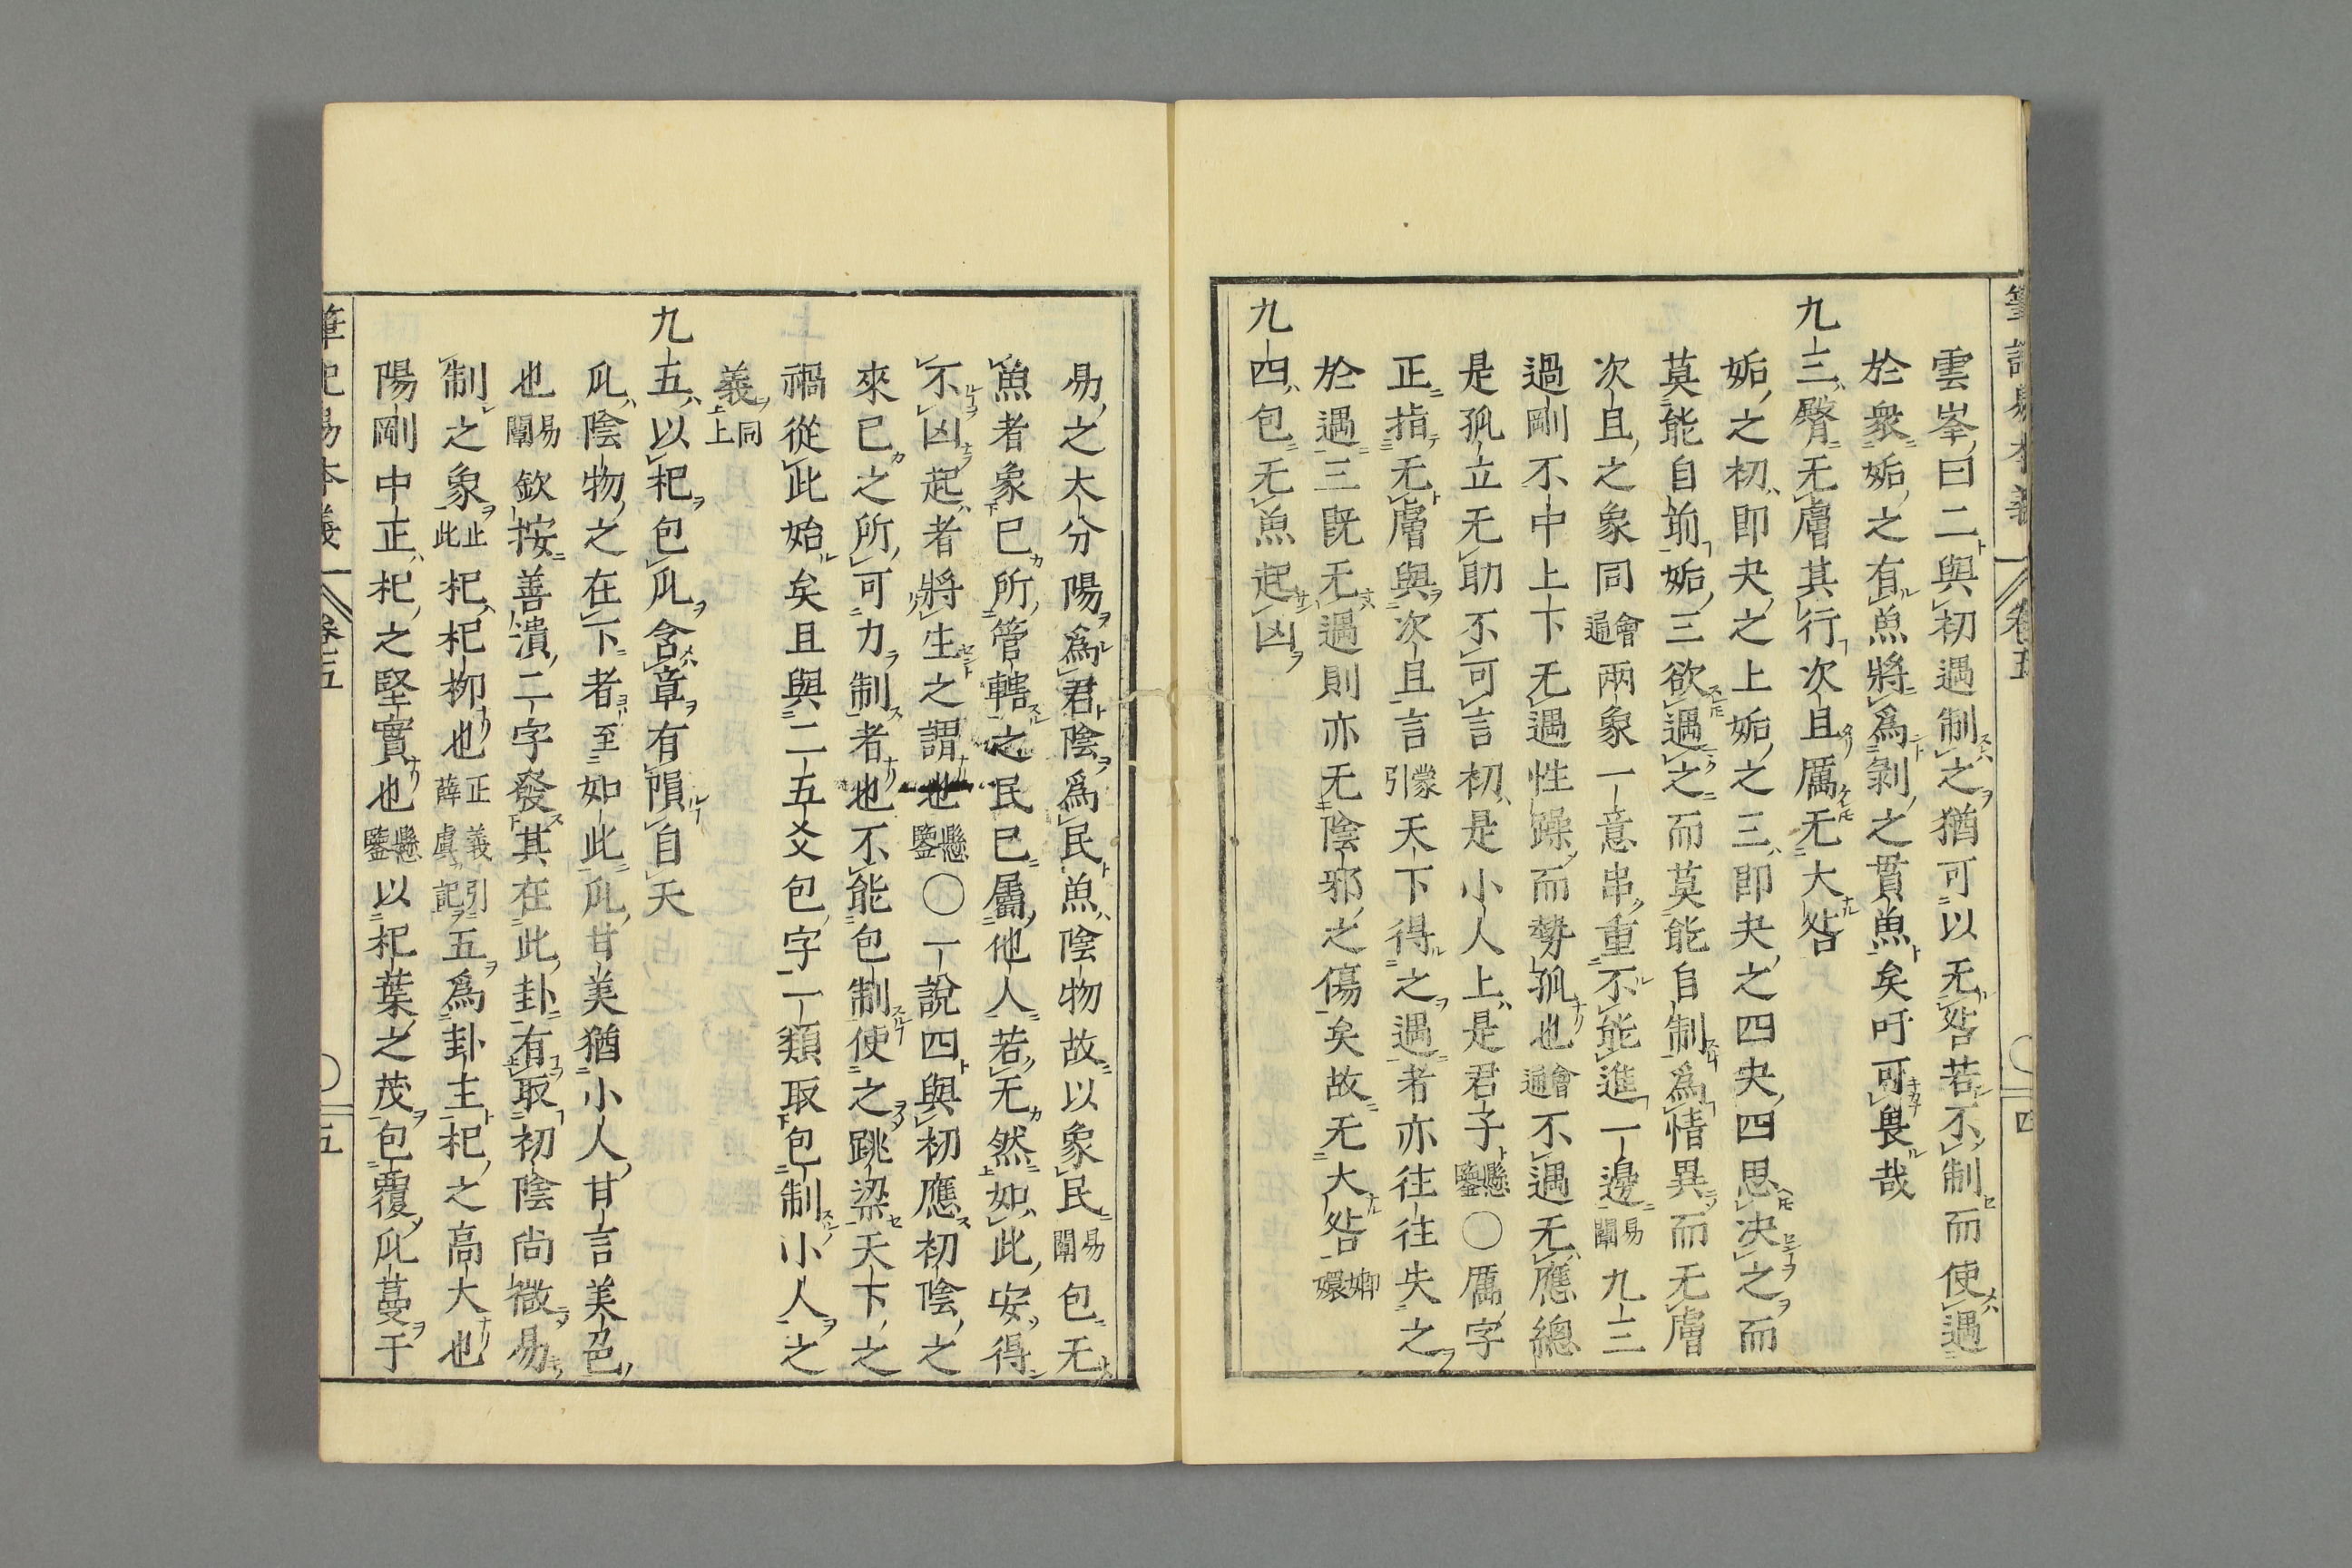 筆記易本義
卷五
四
雲峯曰二與初遇制之猶可以无咎若不制而使遇
於衆姤之有魚將爲剝之貫魚矣吁可畏哉
九三臀无膚其行次且厲无大咎
姤之初即夬之上姤之三即夬之四夬四思決之而
莫能自前姤三欲遇之而莫能自制爲情異而无膚
次且之象同會通兩象一意串重不能進一邊易闡九三
過剛不中上下无遇性躁而勢孤也會通不遇无應總
是孤立无助不可言初是小人上是君子懸鑒〇厲字
正指无膚與次且言蒙引天下得之遇者亦往往失之
於遇三既无遇則亦无陰邪之傷矣故无大咎嫏嬛
九四包无魚起凶
易之大分陽爲君陰爲民魚陰物故以象民易闡包无
魚者象已所管轄之民已屬他人若无然如此安得
不凶起者將生之謂也懸鑒〇一說四與初應初陰之
來已之所可力制者也不能包制使之跳梁天下之
禍從此始矣且與二五爻包字一類取包制小人之
義同上
九五以杞包瓜含章有隕自天
瓜陰物之在下者至如此瓜甘美猶小人甘言美色
也易闡欽按善潰二字發其在此卦有取初陰尚微易
制之象止此杞杞柳也正義薛虞引記五爲卦主杞之高大也
陽剛中正杞之堅實也懸鑒以杞葉之茂包覆瓜蔓于
筆記易本義
卷五
五